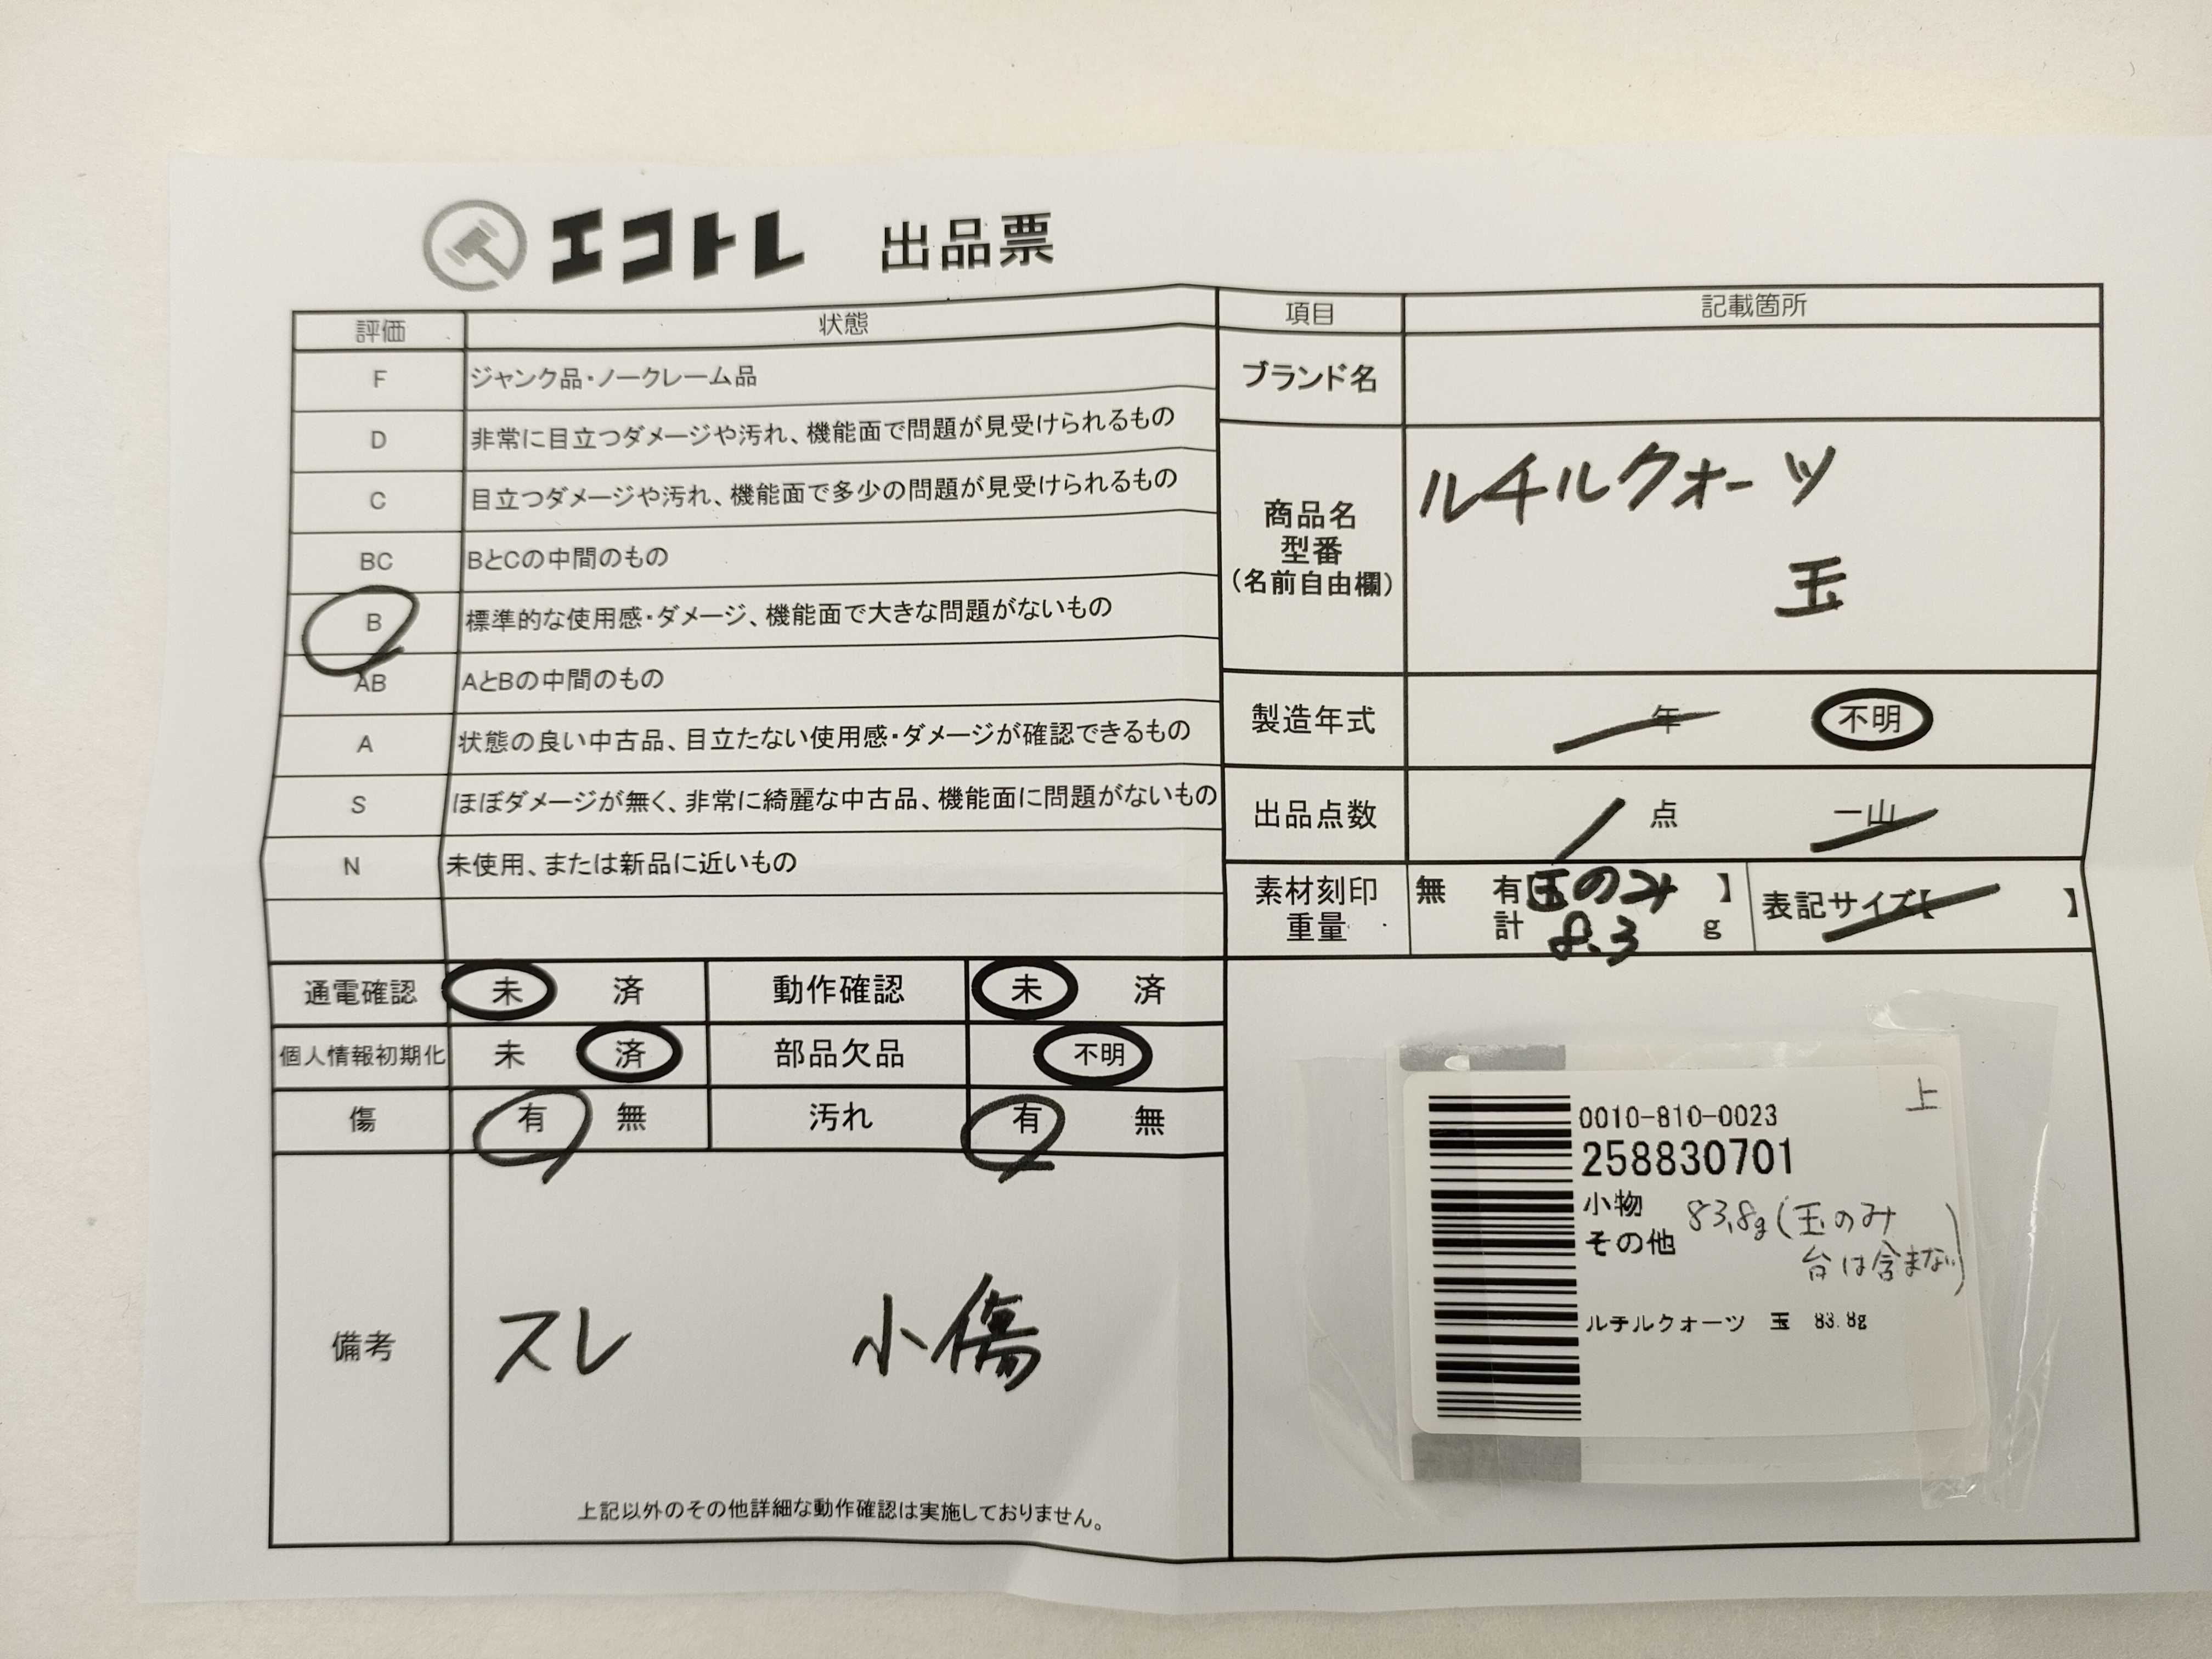 エコトレ 出品票
評価 状態
F ジャンク品・ノークレーム品
D 非常に目立つダメージや汚れ、機能面で問題が見受けられるもの
C 目立つダメージや汚れ、機能面で多少の問題が見受けられるもの
BC BとCの中間のもの
B 標準的な使用感・ダメージ、機能面で大きな問題がないもの
AB AとBの中間のもの
A 状態の良い中古品、目立たない使用感・ダメージが確認できるもの
S ほぼダメージが無く、非常に綺麗な中古品、機能面に問題がないもの
N 未使用、または新品に近いもの
通電確認 未 済 動作確認 未 済
個人情報初期化 未 済 部品欠品 不明
傷 有 無 汚れ 有 無
備考 スレ 小傷
上記以外のその他詳細な動作確認は実施しておりません。
項目 記載箇所
ブランド名
商品名
型番
(名前自由欄)
ルチルクォーツ
玉
製造年式 年 不明
出品点数 1 点 一山
素材刻印 無 有【玉のみ 】 表記サイズ【 】
重量 計 8.3 g
上
0010-810-0023
258830701
小物
その他
83.8g(玉のみ
台は含まない)
ルチルクォーツ 玉 83.8g